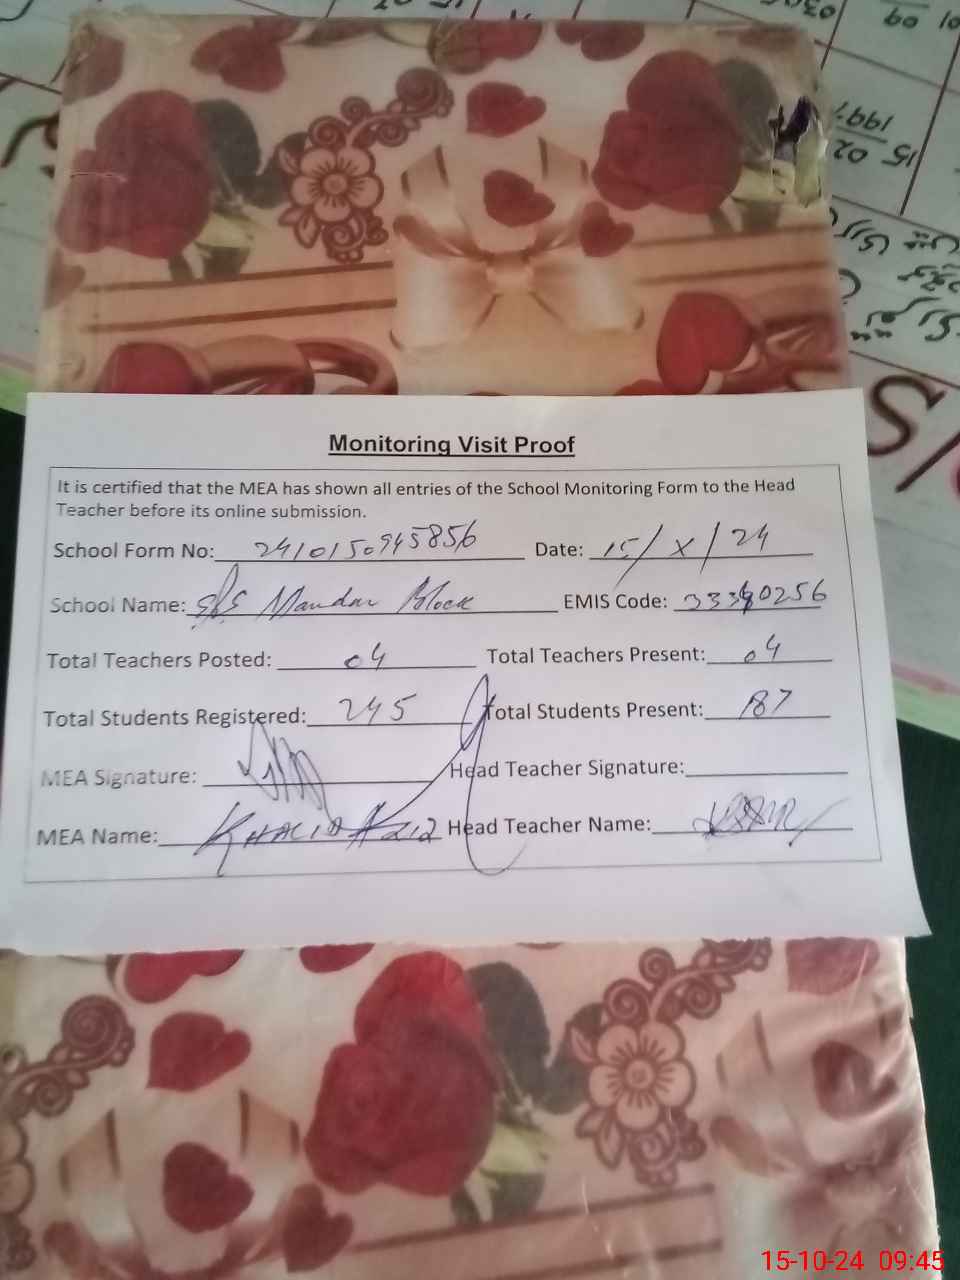 15 02
1997
Monitoring Visit Proof
It is certified that the MEA has shown all entries of the School Monitoring Form to the Head
Teacher before its online submission.
School Form No: 2410150945856 Date: 15/X/24
School Name: Block EMIS Code: 33340256
Total Teachers Posted: 04 Total Teachers Present: 04
Total Students Registered: 245 Total Students Present: 87
MEA Signature: Head Teacher Signature:
MEA Name: KHALID AZIZ Head Teacher Name:
15-10-24 09:45